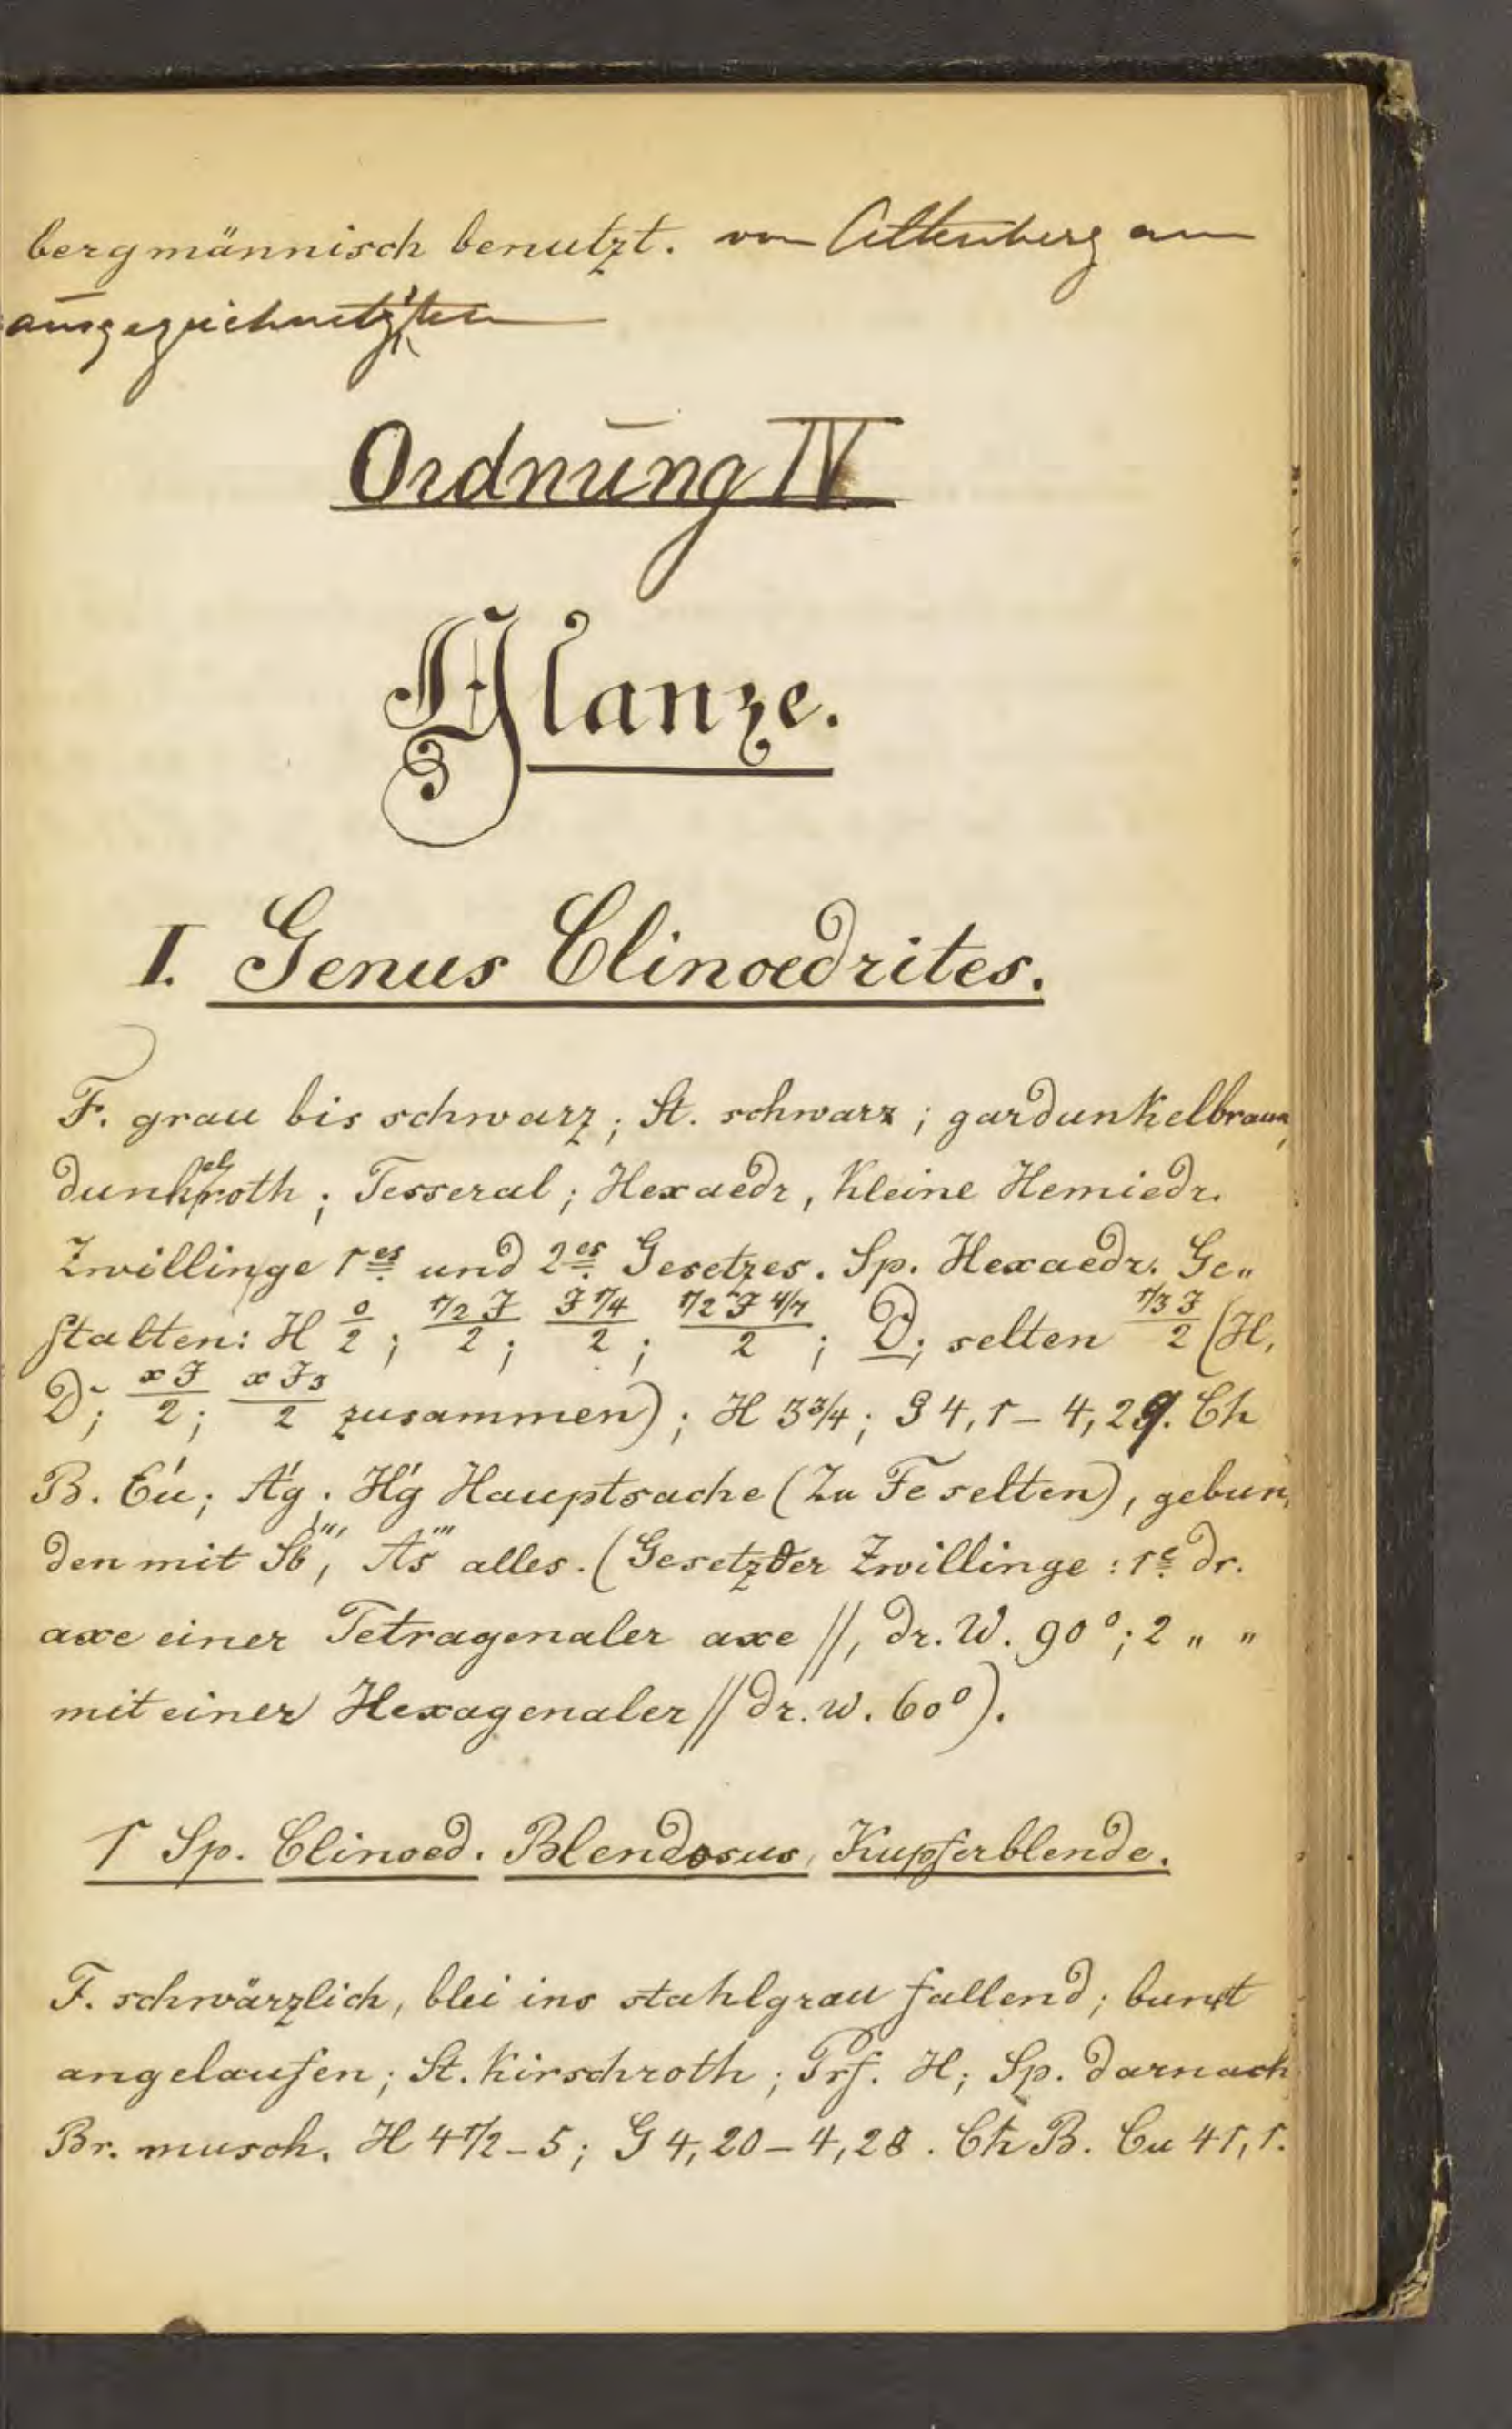 bergmännisch benutzt. von Altenberg am
ausgezeichnetsten
Ordnung IV
Glanze.
I. Genus Clinoedrites.
F. grau bis schwarz; St. schwarz; gardunkelbraun,
dunkelroth; Tesseral; Hexaedr, kleine Hemiedr.
Zwillinge 1es und 2es Gesetzes. Sp. Hexaedr. Ge„
stalten: H 0/2; 1/2 F/2; F 1/4/2; 1/2 F 4/7/2; D; selten 1/3 F/2 (H,
D; x F/2; x F3/2 zusammen); H 3 3/4; G 4,1 – 4,29. Ch
B. Cu; Ag; Hg Hauptsache (Zn Fe selten), gebun„
den mit Sb''', As''' alles. (Gesetz der Zwillinge: 1e dr.
axe einer Tetragenaler axe //, dr. W. 90°; 2 „ „
mit einer Hexagenaler // dr. w. 60°).
1 Sp. Clinoed. Blendosus, Kupferblende.
F. schwärzlich, blei ins stahlgrau fallend; bunt
angelaufen; St. kirschroth; Prf. H; Sp. darnach
Br. musch. H 4 1/2 – 5; G 4,20 – 4,28. Ch B. Cu 41,1.